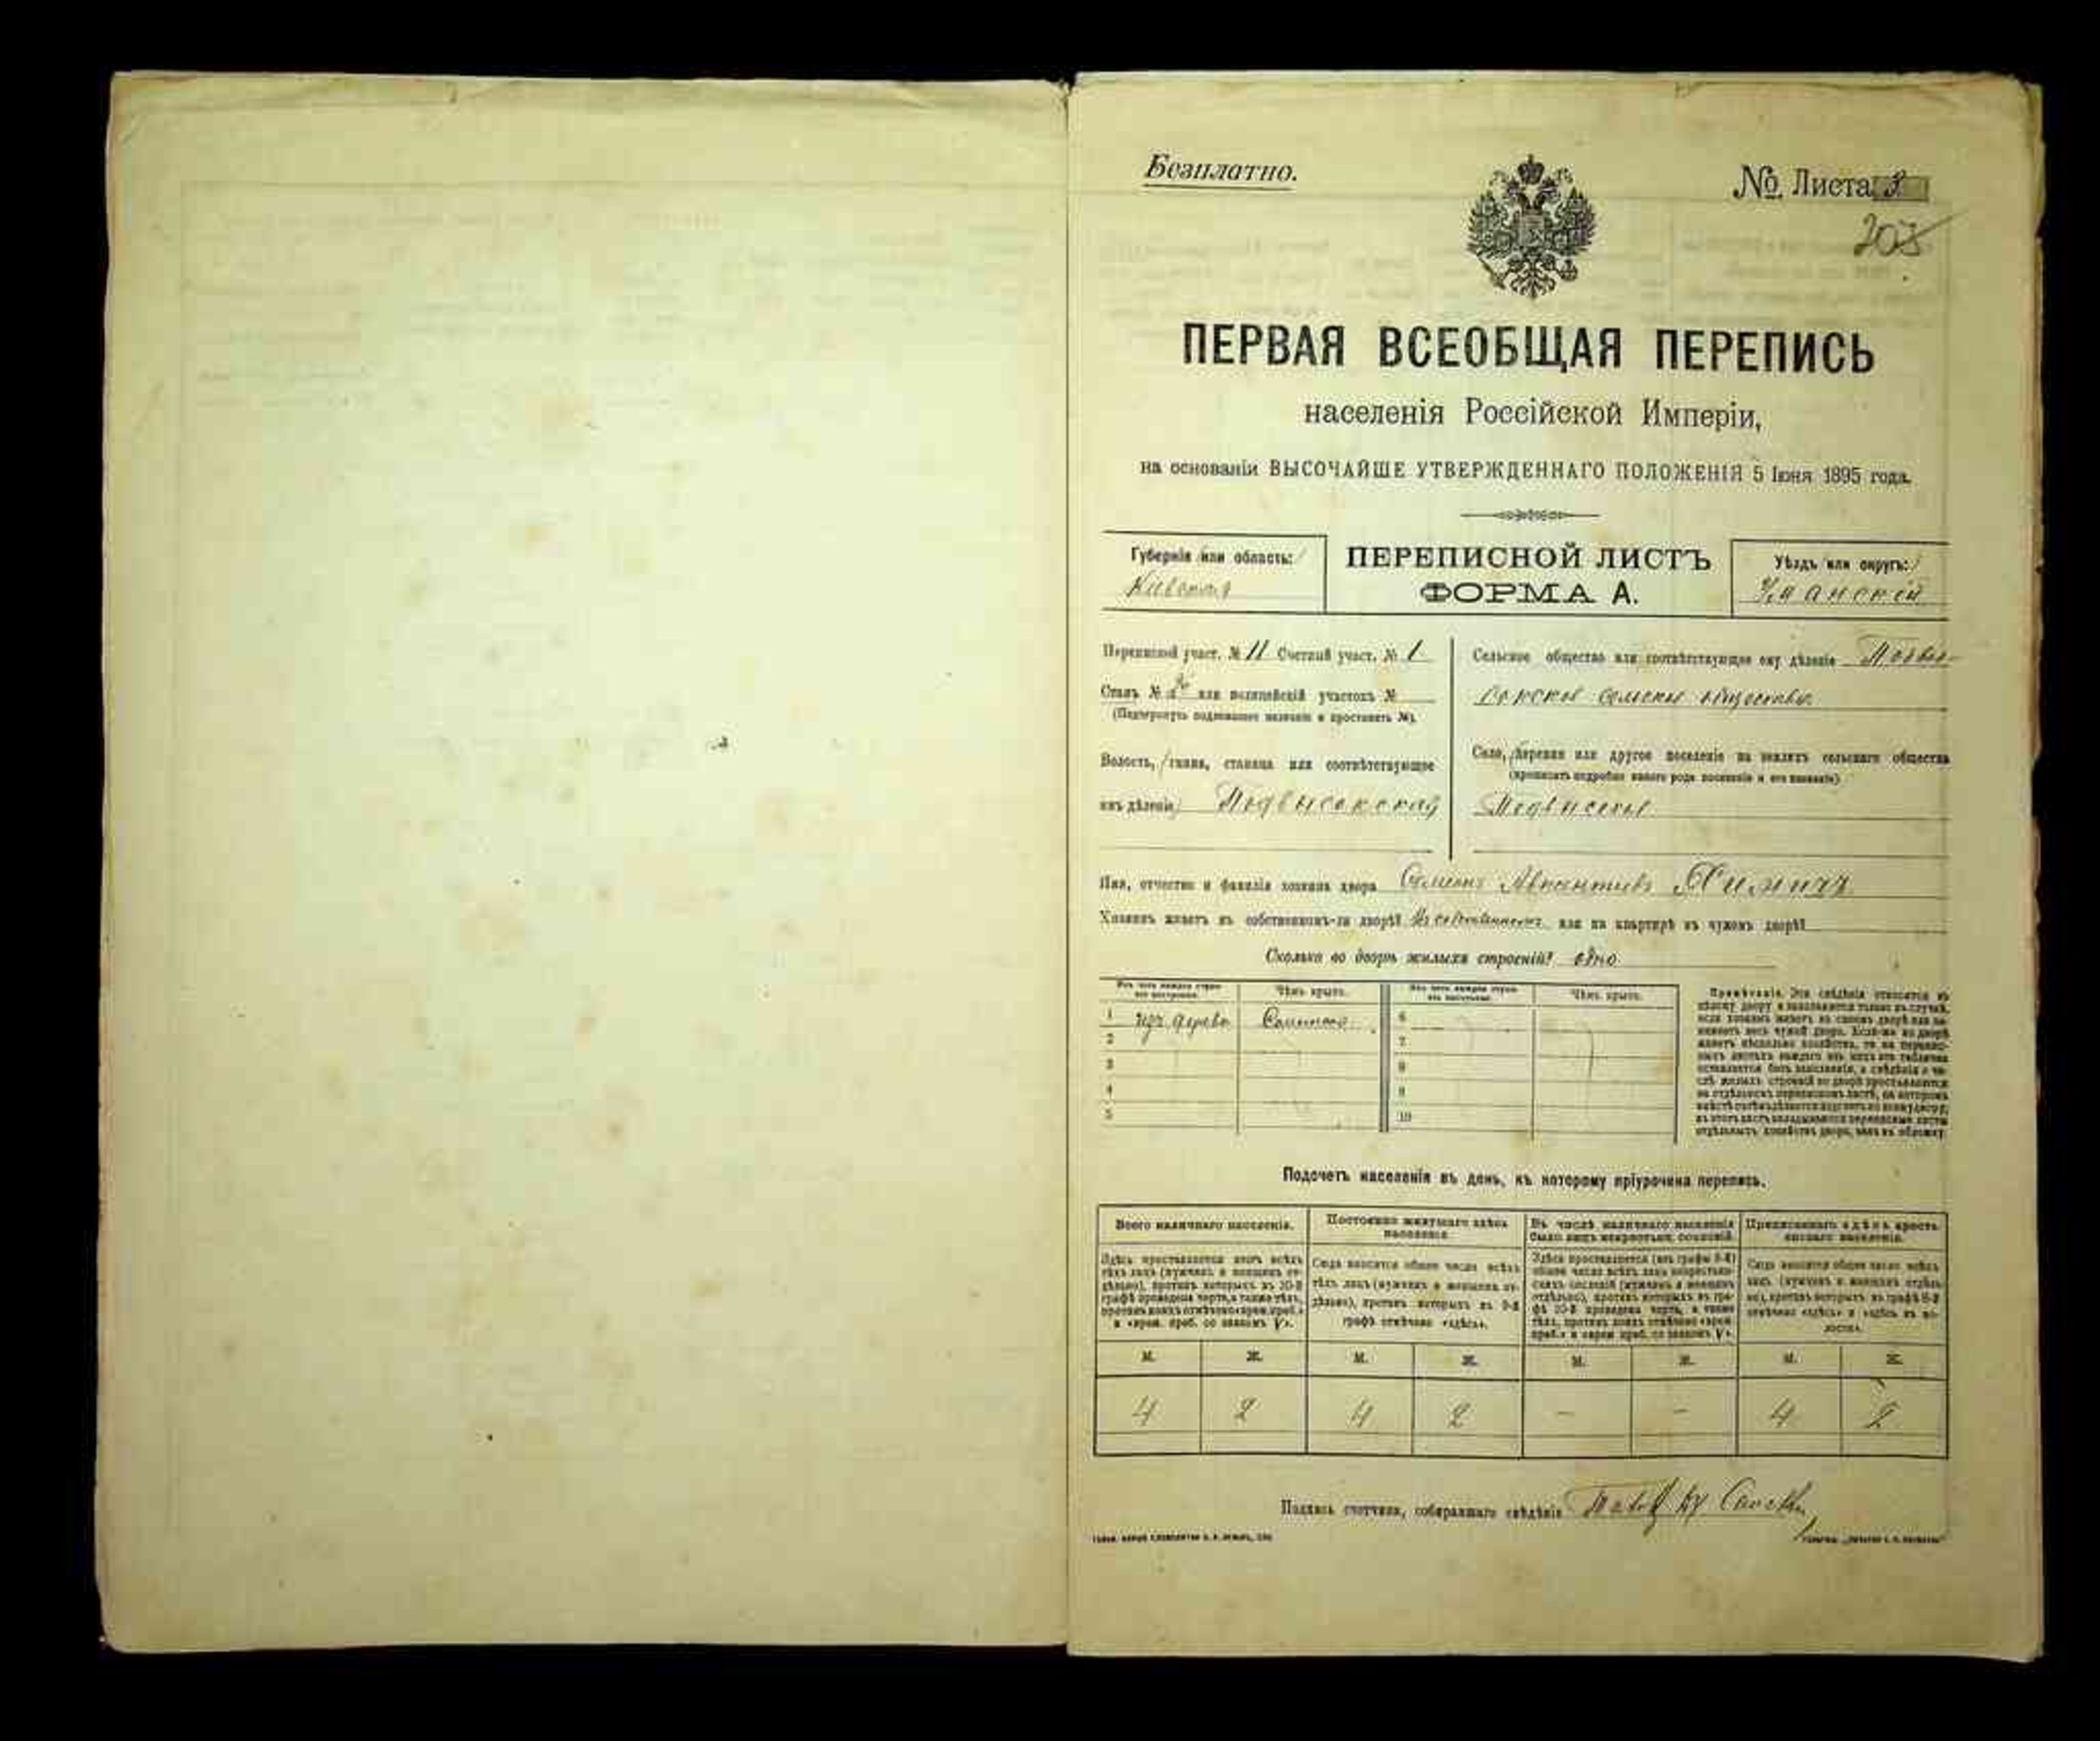 Безплатно.
№ Листа 3
203
ПЕРВАЯ ВСЕОБЩАЯ ПЕРЕПИСЬ
населенія Россійской Имперіи,
на основаніи ВЫСОЧАЙШЕ УТВЕРЖДЕННАГО ПОЛОЖЕНІЯ 5 Іюня 1895 года.
Губернія или область:
Кіевская
ПЕРЕПИСНОЙ ЛИСТЪ
ФОРМА А.
Уѣздъ или округъ:
Уманскій
Переписной участ. № 11 Счетный участ. № 1
Станъ № или полицейскій участокъ №
(Подчеркнуть подлежащее названіе и проставить №).
Волость, гмина, станица или соотвѣтствующее
имъ дѣленіе Подвысокская
Сельское общество или соотвѣтствующее ему дѣленіе Подвы-
сокское сельское общество
Село, деревня или другое поселеніе на земляхъ сельскаго общества
(прописать подробно какого рода поселеніе и его названіе)
Подвысокое
Имя, отчество и фамилія хозяина двора Семенъ Химичъ
Хозяинъ живетъ въ собственномъ-ли дворѣ? или на квартирѣ въ чужомъ дворѣ?
Сколько во дворѣ жилыхъ строеній? одно
Изъ чего каждое строе-
ніе построено.
Чѣмъ крыто.
Изъ чего каждое строе-
ніе построено.
Чѣмъ крыто.
1 изъ дерева Соломою 6
2 7
3 8
4 9
5 10
Примѣчаніе. Эти свѣдѣнія относятся къ
цѣлому двору и заполняются только въ случаѣ,
если хозяинъ живетъ въ своемъ дворѣ или за-
нимаетъ весь чужой дворъ. Если-же во дворѣ
живетъ нѣсколько хозяйствъ, то на перепис-
ныхъ листахъ каждаго изъ нихъ эта табличка
оставляется безъ заполненія, а свѣдѣнія о чи-
слѣ жилыхъ строеній во дворѣ проставляются
на отдѣльномъ переписномъ листѣ, на которомъ
въ этотъ листъ вкладываются переписные листы
отдѣльныхъ хозяйствъ двора, какъ въ обложку.
Подсчетъ населенія въ день, къ которому пріурочена перепись.
Всего наличнаго населенія.
Постоянно живущаго здѣсь
населенія.
Въ числѣ наличнаго населенія
было лицъ некрестьян. сословій.
Приписаннаго здѣсь кресть-
янскаго населенія.
Здѣсь проставляется итогъ всѣхъ
тѣхъ лицъ (мужчинъ и женщинъ от-
дѣльно), противъ которыхъ въ 10-й
графѣ проведена черта, а также тѣхъ,
противъ коихъ отмѣчено «врем. преб.»
и «врем. преб. со знакомъ V».
Сюда вносится общее число всѣхъ
тѣхъ лицъ (мужчинъ и женщинъ от-
дѣльно), противъ которыхъ въ 9-й
графѣ отмѣчено «здѣсь».
Здѣсь проставляется (изъ графы 6-й)
общее число всѣхъ лицъ некрестьян-
скихъ сословій (мужчинъ и женщинъ
отдѣльно), противъ которыхъ въ гра-
фѣ 10-й проведена черта, а также
тѣхъ, противъ коихъ отмѣчено «врем.
преб.» и «врем преб. со знакомъ V».
Сюда вносится общее число всѣхъ
лицъ (мужчинъ и женщинъ отдѣль-
но), противъ которыхъ въ графѣ 8-й
отмѣчено «здѣсь» и «здѣсь въ во-
лости».
М. Ж. М. Ж. М. Ж. М. Ж.
4 2 4 2 — — 4 2
Подпись счетчика, собиравшаго свѣдѣнія